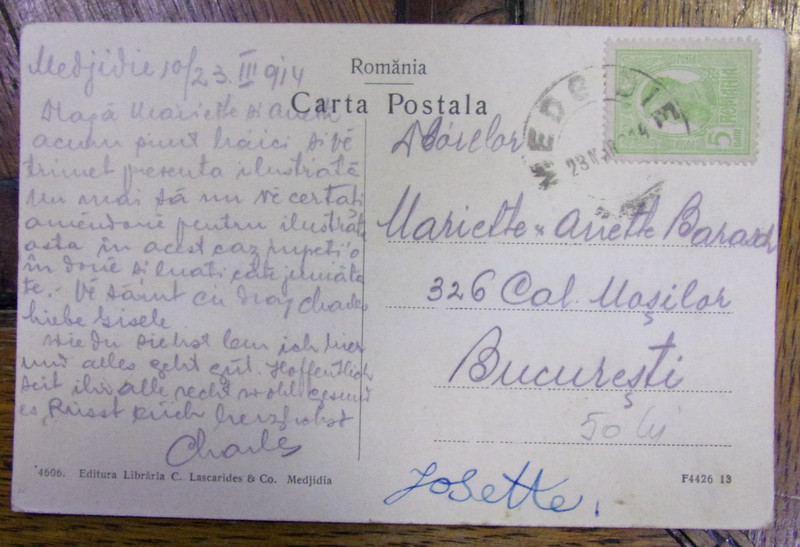 Medjidie 10/23. III 914
Dragă Mariette si Anette
acum sunt haici si vě
trimet presenta ilustrată
nu mai să nu vě certati
amêndouě pentru ilustrata
asta in acest caz rupeti'o
în douě si luati câte jumăta
te.- Vě sărut cu drag Charles
liebe Gisele
Wie du siehst bin ich hier
und alles geht gut. Hoffentlich
seit ihr alle recht wohl gesund
es Küsst Euch herzlichst
Charles
România
Carta Postala
MEDGIDIA
23 MAR 914
ROMANIA
5
BANI
Mariette & Anette Barasch
326 Cal. Moşilor
Bucureşti
50 lei
Josette.
4606. Editura Librăria C. Lascarides & Co. Medjidia
F4426 13